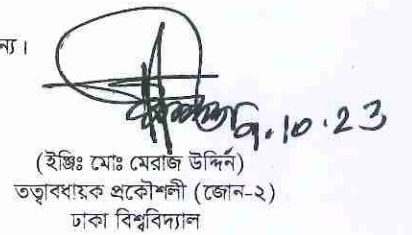 ন্য।
৯.১০.23
(ইঞ্জিঃ মোঃ মেরাজ উদ্দিন)
তত্ত্বাবধায়ক প্রকৌশলী (জোন-২)
ঢাকা বিশ্ববিদ্যাল